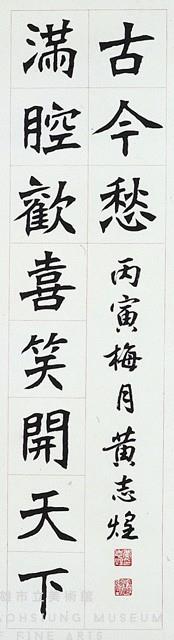 滿腔歡喜笑開天下
古今愁
丙寅梅月黃志煌
雄市立美術館
AOHSIUNG MUSEUM
F FINE ARTS